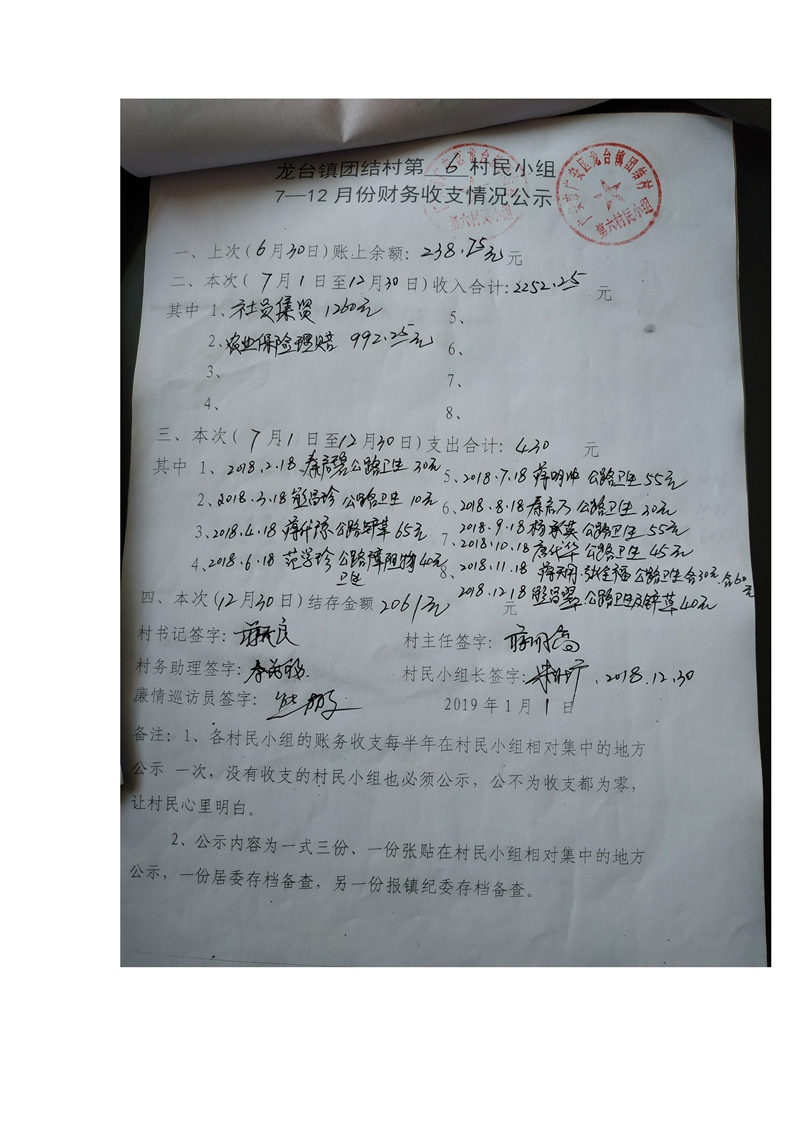 龙台镇团结村第 6 村民小组
7—12月份财务收支情况公示
广安市广安区龙台镇团结村
第六村民小组
一、上次(6月30日)账上余额：238.75元 元
二、本次(7月1日至12月30日)收入合计:2252.25 元
其中 1、社员集资 1260元
5、
2、农业保险理赔 992.25元
6、
3、
7、
4、
8、
三、本次(7月1日至12月30日)支出合计：430 元
其中 1、2018.2.18 公路卫生 30元
5、2018.7.18 蒋明 公路卫生 55元
2、2018.3.18 昌珍 公路卫生 10元
6、2018.8.18 公路卫生 30元
3、2018.4.18 蒋 公路铲草 65元
7、2018.9.18 杨承英 公路卫生 55元
2018.10.18 唐代华 公路卫生 45元
4、2018.6.18 范学珍 公路障阻物 40元
卫生
8、2018.11.18 蒋 全福 公路卫生 各30元.合60元
2018.12.18 昌 公路卫生及铲草 40元
四、本次(12月30日)结存金额 2061元 元
村书记签字：
村主任签字：
村务助理签字：
村民小组长签字： 2018.12.30
廉情巡访员签字：
2019年1月1日
备注：1、各村民小组的账务收支每半年在村民小组相对集中的地方
公示 一次，没有收支的村民小组也必须公示，公不为收支都为零，
让村民心里明白。
2、公示内容为一式三份、一份张贴在村民小组相对集中的地方
公示，一份居委存档备查，另一份报镇纪委存档备查。